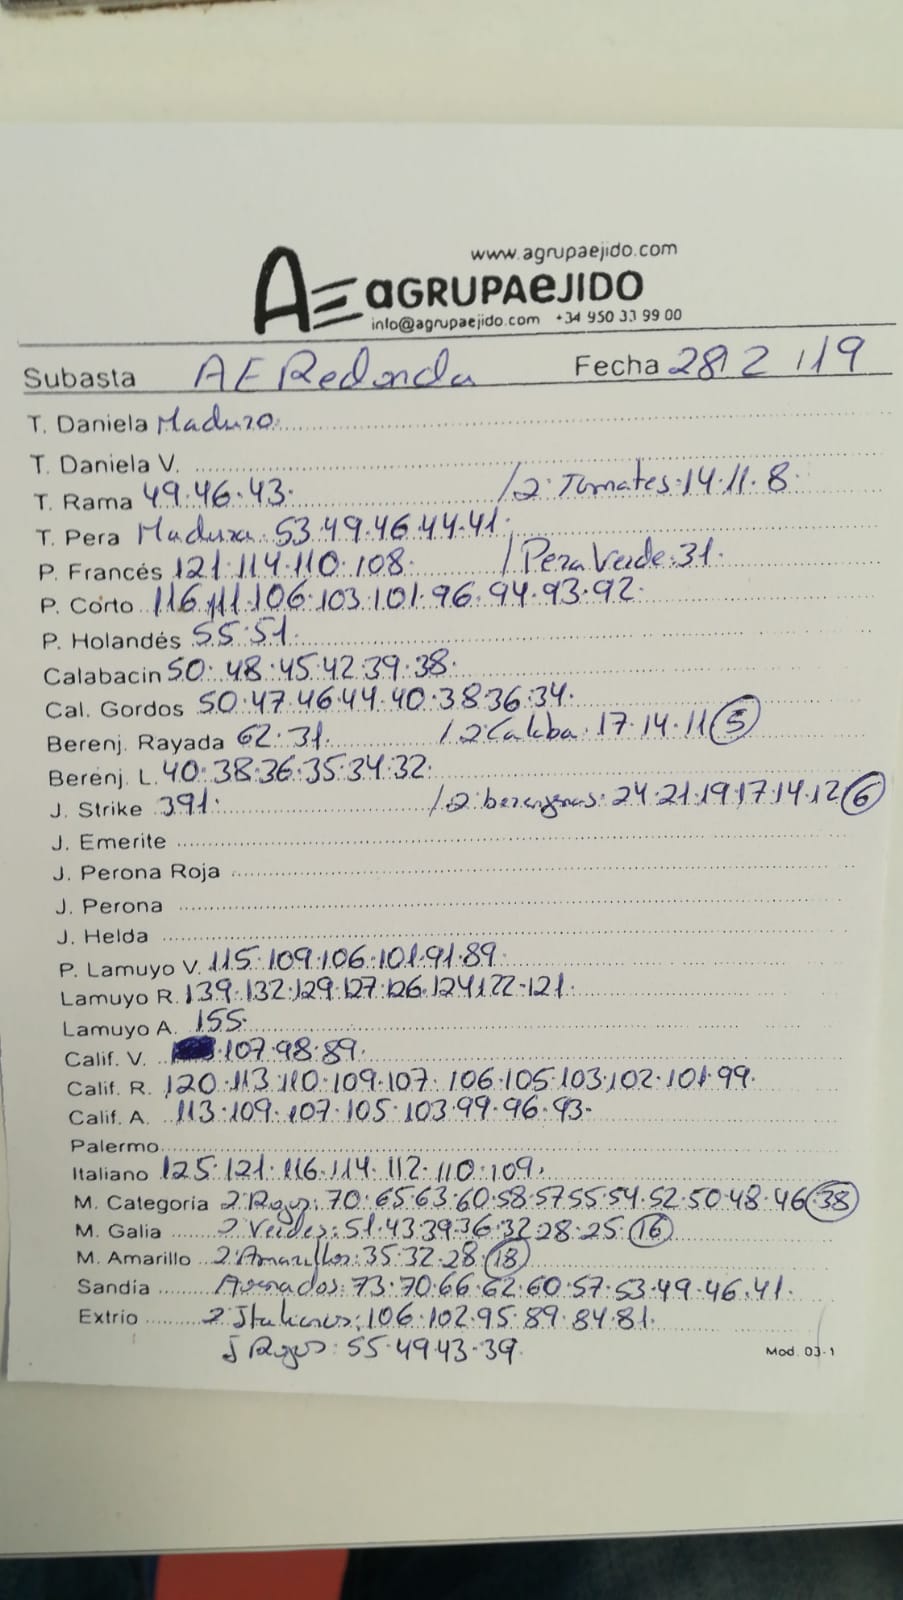 www.agrupaejido.com
AE aGRUPAeJIDO
info@agrupaejido.com +34 950 33 99 00
Subasta AE Redonda Fecha 28 2 19
T. Daniela Maduro
T. Daniela V.
T. Rama 49.46.43. /2ª Tomates.14.11.8.
T. Pera Madura.53.49.46.44.41.
P. Francés 121.114.110.108. /Pera Verde.31.
P. Corto 116.111.106.103.101.96.94.93.92.
P. Holandés 55.51.
Calabacin 50.48.45.42.39.38.
Cal. Gordos 50.47.46.44.40.38.36.34.
Berenj. Rayada 62.31. /2ª Calaba.17.14.11 (5)
Berenj. L. 40.38.36.35.34.32.
J. Strike 391. /2ª berenjenas.24.21.19.17.14.12 (6)
J. Emerite
J. Perona Roja
J. Perona
J. Helda
P. Lamuyo V. 115.109.106.101.91.89.
Lamuyo R. 139.132.129.127.126.124.122-121.
Lamuyo A. 155.
Calif. V. .107.98.89.
Calif. R. 120.113.110.109.107.106.105.103.102.101.99.
Calif. A. 113.109.107.105.103.99.96.93-
Palermo
Italiano 125.121.116.114.112.110.109.
M. Categoria 2ª Rojos:70.65.63.60.58.57.55.54.52.50.48.46 (38)
M. Galia 2ª Verdes:51.43.39.36.32.28.25.(16)
M. Amarillo 2ª Amarillos:35.32.28.(18)
Sandía Asurados:73.70.66.62.60.57.53.49.46.41.
Extrio 2ª Italianos:106.102.95.89.84.81.
J Rojos:55.49.43.39.
Mod. 03-1